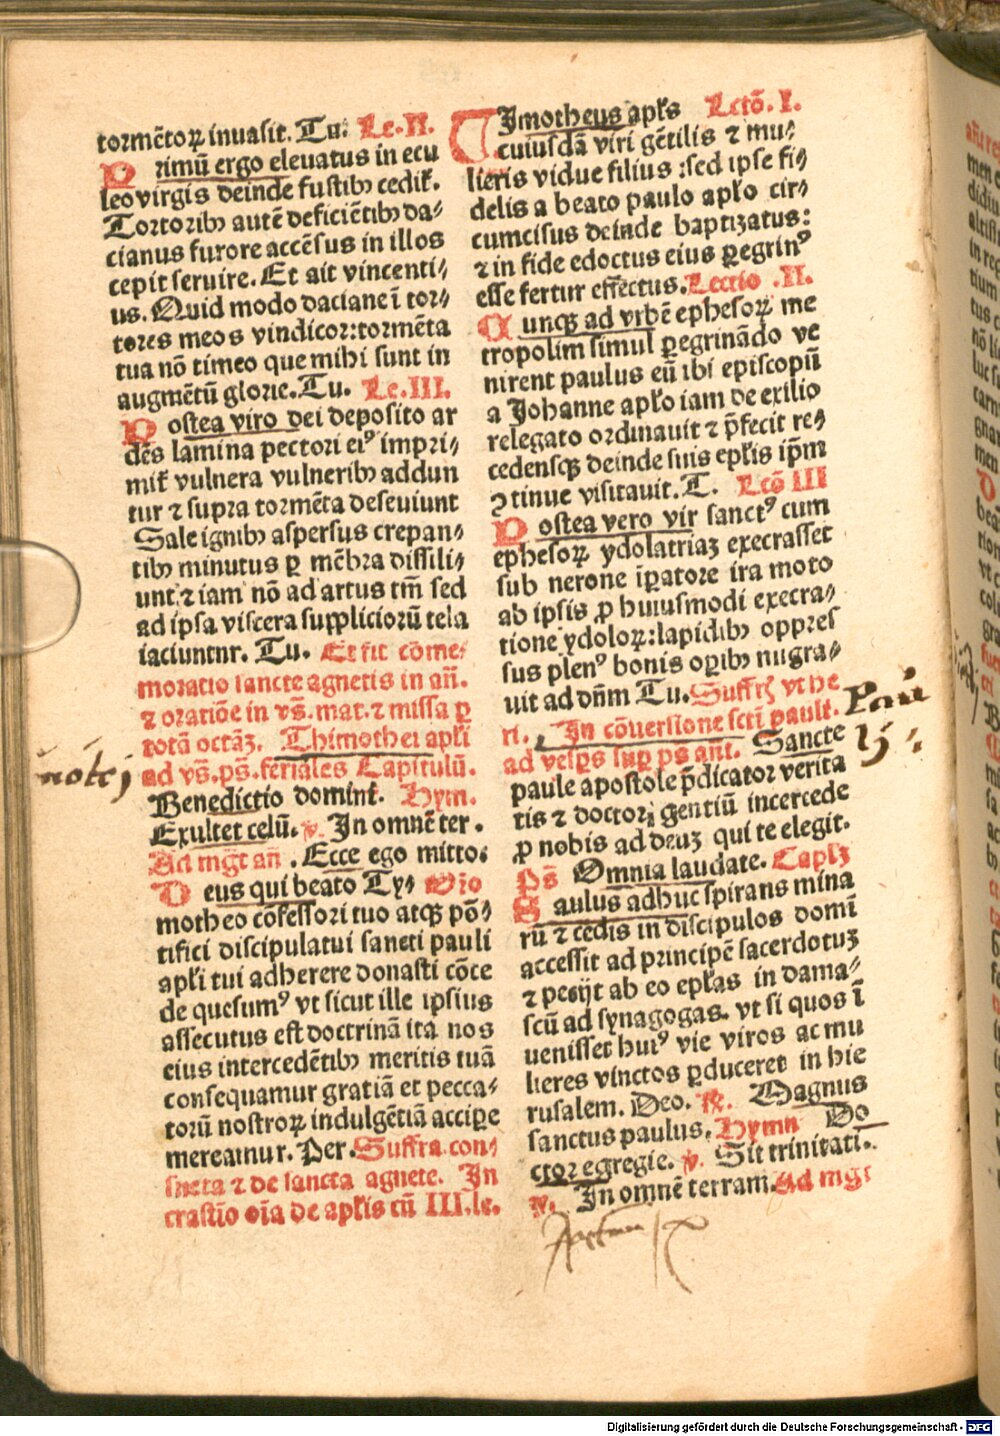 tormētoꝝ inuasit. Tu. Le.II.
Primū ergo eleuatus in ecu
leo virgis deinde fustibꝫ cedit̃.
Tortoribꝫ autē deficiētibꝫ da⸗
cianus furore accēsus in illos
cepit seruire. Et ait vincenti⸗
us. Quid modo daciane ī tor⸗
tores meos vindicor:tormēta
tua nō timeo que mihi sunt in
augmētū glorie. Tu. Le.III.
Postea viro dei deposito ar
dēs lamina pectori eiꝰ impri⸗
mit̃ vulnera vulneribꝫ addun
tur ⁊ supra tormēta deseuiunt
Sale ignibꝫ aspersus crepan⸗
tibꝫ minutus ꝑ mēbra dissili⸗
unt ⁊ iam nō ad artus tm̄ sed
ad ipsa viscera suppliciorū tela
iaciuntnr. Tu. Et fit cōme⸗
moratio sancte agnetis in añ.
⁊ oratiōe in vs̄. mat. ⁊ missa ꝑ
totā octaꝫ. Thimothei apłi
ad vs̄. ps̄. feriales Capitulū.
Benedictio domini. Hym.
Exultet celū. v. In omnē ter.
Ad mgt̄ añ. Ecce ego mitto.
Deus qui beato Ty⸗ Orō
motheo cōfessori tuo atqꝫ pō⸗
tifici discipulatui sancti pauli
apłi tui adherere donasti cōce
de quesumꝰ vt sicut ille ipsius
assecutus est doctrinā ita nos
eius intercedētibꝫ meritis tuā
consequamur gratiā et pecca⸗
torū nostroꝝ indulgētiā accipe
mereamur. Per. Suffra.con⸗
sueta ⁊ de sancta agnete. In
crastīo oīa de apłis cū III.le.
notej
Timotheus apłs Lctō. I.
cuiusdā viri gētilis ⁊ mu⸗
lieris vidue filius :sed ipse fi⸗
delis a beato paulo apło cir⸗
cumcisus deinde baptizatus:
⁊ in fide edoctus eius ꝑegrinꝰ
esse fertur effectus. Lectio .II.
Cunqꝫ ad vrbē ephesoꝝ me
tropolim simul ꝑegrināndo ve
nirent paulus eū ibi episcopū
a Johanne apło iam de exilio
relegato ordinauit ⁊ p̄fecit re⸗
cedensqꝫ deinde suis epłis ipm̄
ꝯtinue visitauit. T. Lcō III
Postea vero vir sanctꝰ cum
ephesoꝝ ydolatriaꝫ execrasset
sub nerone īpatore ira moto
ab ipsis ꝓ huiusmodi execra⸗
tione ydoloꝝ:lapidibꝫ oppres
sus plenꝰ bonis oꝑibꝫ migra⸗
uit ad dn̄m Tu. Suffr̃ vt he
ri. In cōuersione scti pauli.
ad vesꝑs sup ps̄ ant. Sancte
paule apostole p̄dicator verita
tis ⁊ doctor gentiū intercede
ꝓ nobis ad deuꝫ qui te elegit.
Ps̄ Omnia laudate. Caplꝫ
Saulus adhuc spirans mina
rū ⁊ cedis in discipulos domī
accessit ad principē sacerdotuꝫ
⁊ petijt ab eo epłas in dama⸗
scū ad synagogas. vt si quos ī
uenisset huiꝰ vie viros ac mu
lieres vinctos ꝑduceret in hie
rusalem. Deo. ꝶ. Magnus
sanctus paulus. Hymn Do
ctor egregie. v. Sit trinitati.
v. In omnē terram. Ad mgt
Pau
lj